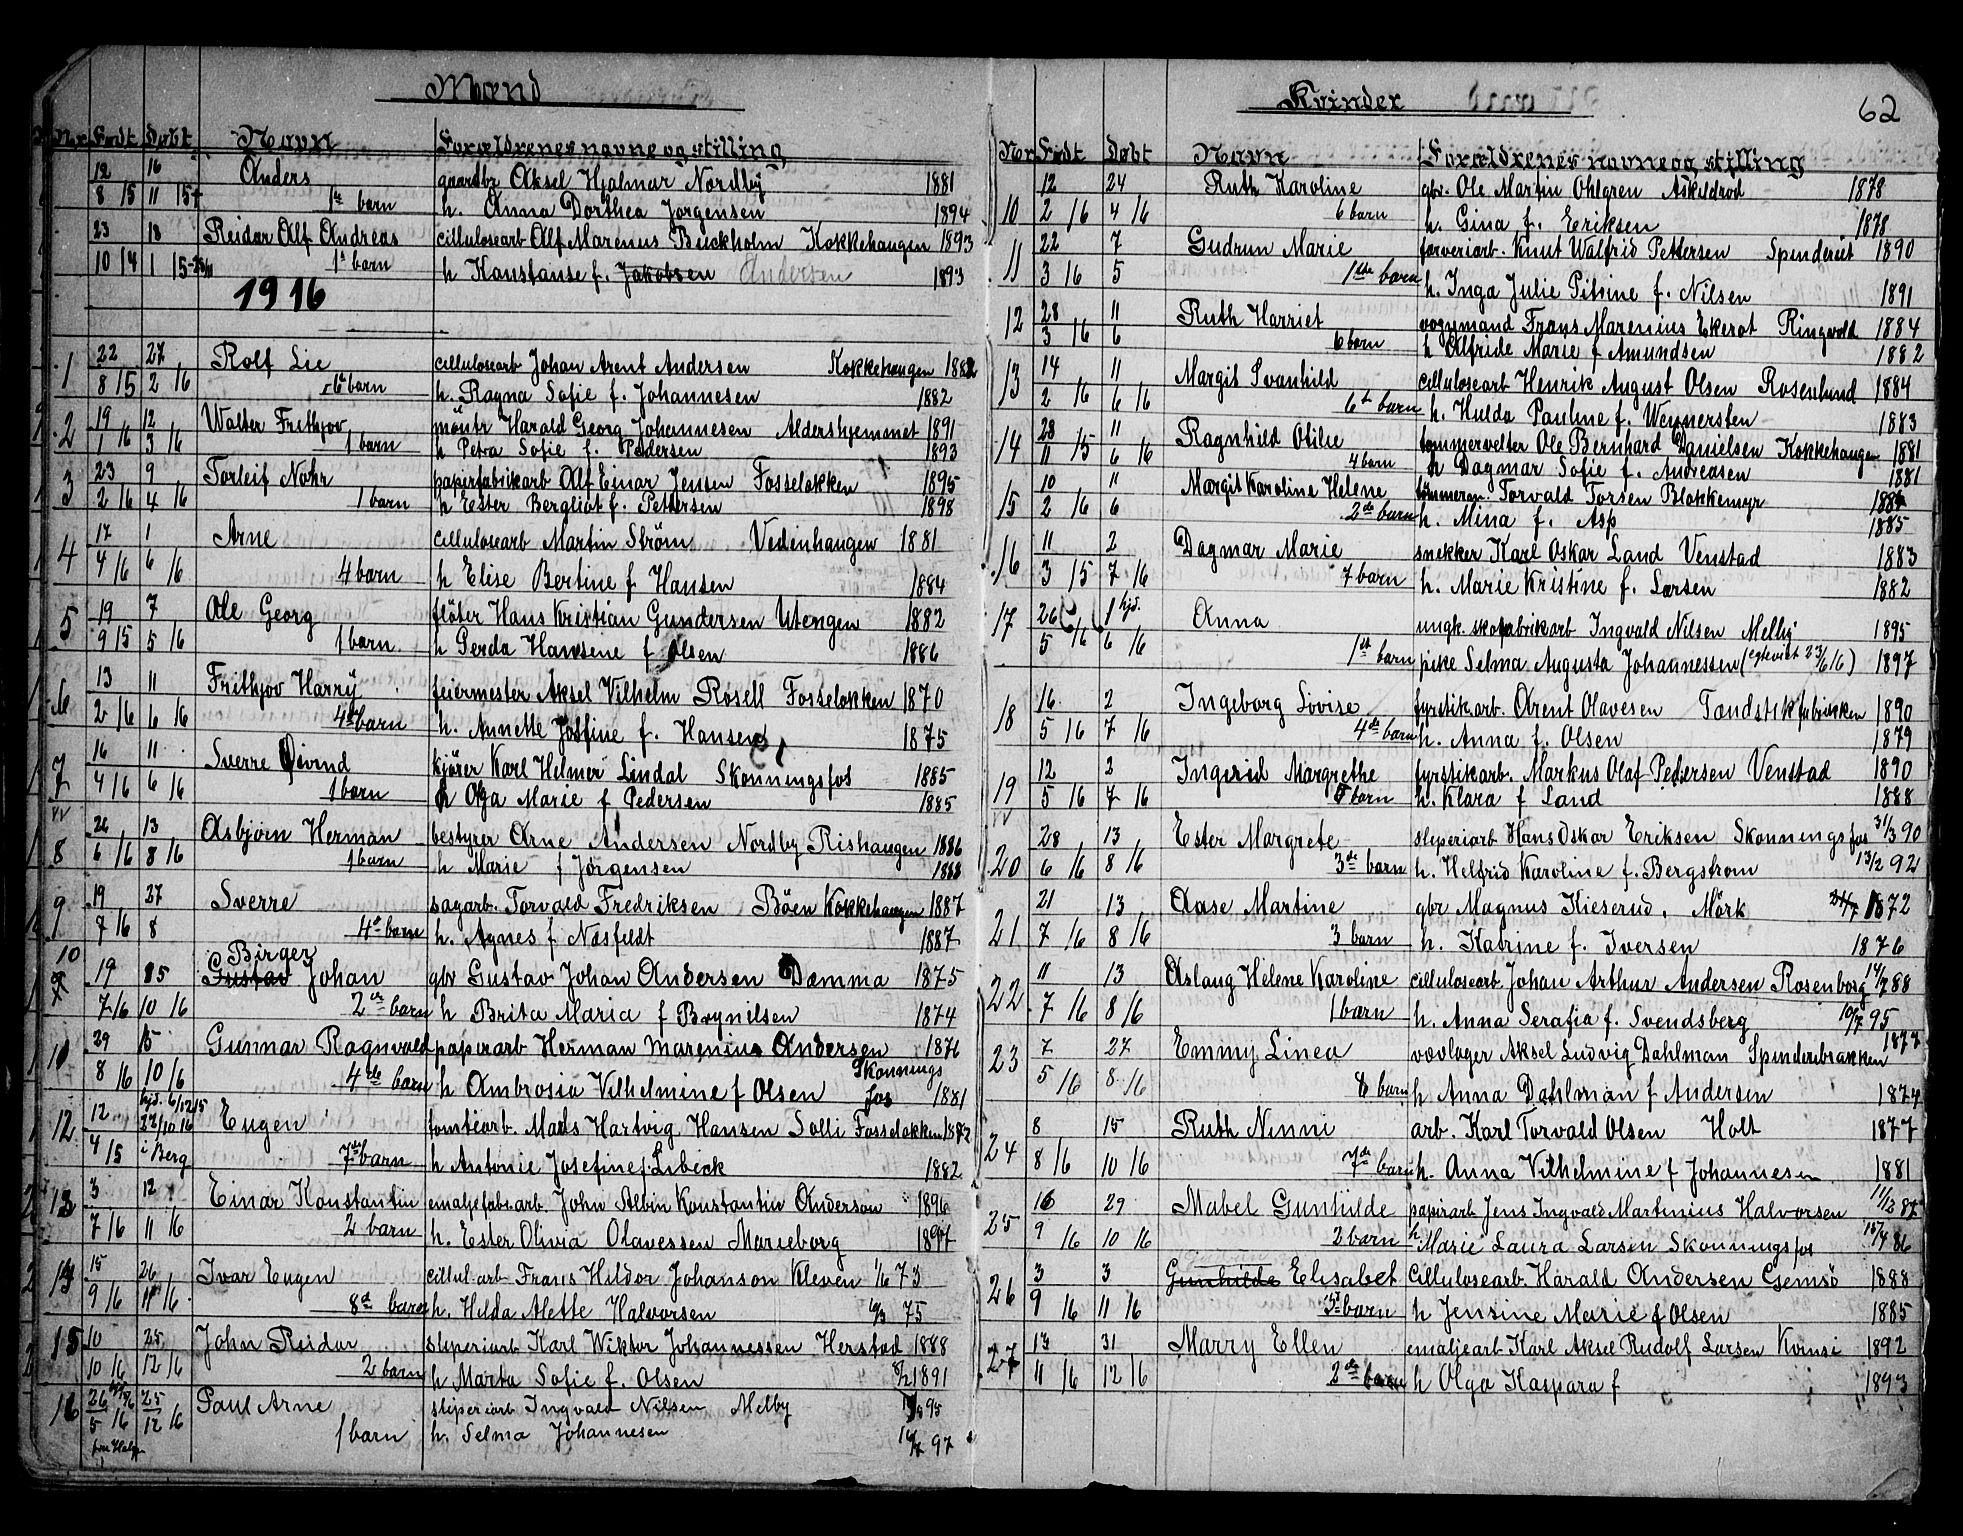 Mænd
Nr. Født Døbt Navn Forældrenes navne og stilling
12 16 Anders gaardbr Aksel Hjalmar Nordby 1881
8 15 11 15 1ste barn h. Anna Dorthea Jørgensen 1894
23 18 Reidar Alf Andreas cilluloséarb Alf Marenus Buckholm Kokkehaugen 1893
10 14 1 15 1ste barn h Konstanse f. Jakobsen Andersen 1893
1916
1 22 27 Rolf Lie cilluloséarb Johan Arent Andersen Kokkehaugen 1882
8 15 2 16 6te barn h. Ragna Sofie f. Johannesen 1882
2 19 12 Walter Frithjov möntr Harald Georg Johannesen Aldershjemmet 1891
1 16 3 16 1 barn h Petra Sofie f. Pedersen 1893
3 23 9 Torleif Nohr papirfabrikarb Alf Einar Jensen Fosseløkken 1895
2 16 4 16 1 barn h Ester Bergliot f. Pettersen 1898
4 17 1 Arne cilluloséarb Martin Strøm Vedenhaugen 1881
4 16 6 16 4 barn h Elise Bertine f Hansen 1884
5 19 7 Ole Georg flöter Hans Kristian Gundersen Utengen 1882
9 15 5 16 1 barn. h Gerda Hansine f Olsen 1886
6 13 11 Frithjov Harry feiermester Aksel Vilhelm Rosell Fosseløkken 1870
2 16 6 16 4de barn h. Annette Josfine f. Hansen 1875
7 16 11 Sverre Øivind kjører Karl Helmer Lindal Skonningsfos 1885
4 16 6 16 1 barn h Olga Marie f Pedersen 1885
8 26 13 Asbjørn Herman bestyrer Arne Andersen Nordby Rishaugen 1886
6 16 8 16 1 barn h Marie f Jørgensen 1888
9 19 27 Sverre sagarb. Torvald Fredriksen Böen Kokkehaugen 1887
7 16 8 4de barn h. Agnes f Næsfeldt 1887
Birger
10 19 85 Gustav Johan gbr Gustav Johan Andersen Damma 1875
7 16 10 16 2det barn h Brita Maria f Brynilsen 1874
29 15 Gunnar Ragnvald papirarb Herman Marenius Andersen 1876
Skonnings
8 16 10 16 4de barn h Ambrosia Vilhelmine f Olsen fos 1881
hjd. 6/12 15
12 12 22/10 16 Eugen Mads Hartvig Hansen Solli Fosseløkken 1872
4 15 i Berg 7de barn h Antonie Josefine f. Libeck 1882
13 3 12 Einar Konstantin emaljefabr.arb. John Albin Konstantin Anderson 1896
7 16 11 16 2 barn h. Ester Olivia Olavessen Marieborg 1897
14 15 26 Ivar Eugen cillul.arb Frans Hildor Johanson Kleven 1/6 73
9 16 11 16 8de barn h. Hilda Alette Halvorsen 75
15 10 25 John Reidar sliperiarb Karl Wiktor Johannessen Herstad 1888
10 16 12 16 2 barn h Marta Sofie f. Olsen 1891
16 26 25 Paul Arne sliperiarb Ingvald Nilsen Melby 95
5 16 12 16 1 barn h. Selma Johannesen 97
Kvinder 62
Nr. Født Døbt Navn Forældrenes navne og stilling
12 24 Ruth Karoline gbr. Ole Martin Ohlgren Askildrød 1878
10 2 16 4 16 6 barn h. Gina f. Eriksen 1878
11 22 7 Gudrun Marie farveriarb. Knut Walfrid Pettersen Spinderiet 1890
3 16 5 1ste barn h. Inga Julie Pitrine f. Nilsen 1891
12 28 11 Ruth Harriet vognmand Frans Marenius Ekerot Ringvold 1884
3 16 6 6 barn h Alfride Marie f Amundsen 1882
13 14 11 Margit Svanhild cilluloséarb Henrik August Olsen Rosenlund 1884
2 16 6 16 6te barn h. Hulda Pauline f. Wennersten 1883
14 28 11 Ragnhild Otilie tømmervelter Ole Bernhard Danielsen Kokkehaugen 1881
11 15 6 16 4 barn h Dagmar Sofie f. Andreasen 1881
15 10 11 Margit Karoline Helene tömmerm. Torvald Torsen Blokkemyr
2 16 6 2de barn h. Mina f. Asp 1885
16 11 2 Dagmar Marie snekker Karl Oskar Land Venstad 1883
3 15 7 16 7 barn h. Marie Kristine f. Larsen 1882
17 26 1 hjd. Anna ungk. skofabrikarb Ingvald Nilsen Melby 1895
5 16 6 16 1ste barn pike Selma Augusta Johannessen (egteviet 23/6 16) 1897
18 16 2 Ingeborg Lovise fyrstikarb. Arent Olavesen Tændstikfabrikken 1890
5 16 7 16 4de barn h. Anna f. Olsen 1879
19 12 2 Ingerid Margrethe fyrstikarb. Markus Olaf Pedersen Venstad 1890
5 16 7 16 barn h. Klara f Land 1888
20 28 13 Ester Margrete sliperiarb Hans Oskar Eriksen Skonningsfos 31/3 90
6 16 8 16 3de barn h. Helfrid Karoline f. Bergstrøm 13/2 92
21 21 13 Aase Martine gbr Magnus Kieserud, Mörk 1872
7 16 8 16 3 barn h. Katrine f. Iversen 1876
22 11 13 Aslaug Hilene Karoline cilluloséarb Johan Arthur Andersen Rosenborg 88
7 16 8 16 1 barn h. Anna Serafia f. Svendsberg 10/7 95
23 7 27 Emmy Linea vævlager Aksel Ludvig Dahlman Spinderibrakken 1873
5 16 8 16 8 barn h Anna Dahlman f Andersen 1874
24 8 15 Ruth Ninni arb. Karl Torvald Olsen Holt 1877
8 16 10 16 7de barn h. Anna Vilhelmine f Johannesen 1881
25 16 29 Mabel Gunhilde papirarb Jens Ingvald Martinius Halvorsen 11/12 87
9 16 10 16 2 barn h Marie Laura Larsen Skonningsfos 86
26 3 3 Gunhilde Elisabet Cilluloséarb. Harald Andersen Gemsö 1888
9 16 11 16 barn h Jensine Marie f Olsen 1885
27 13 31 Marry Ellen emaljearb Karl Aksel Rudolf Larsen Kornsi 1892
11 16 12 16 2de barn h Olga Kaspara f 1893